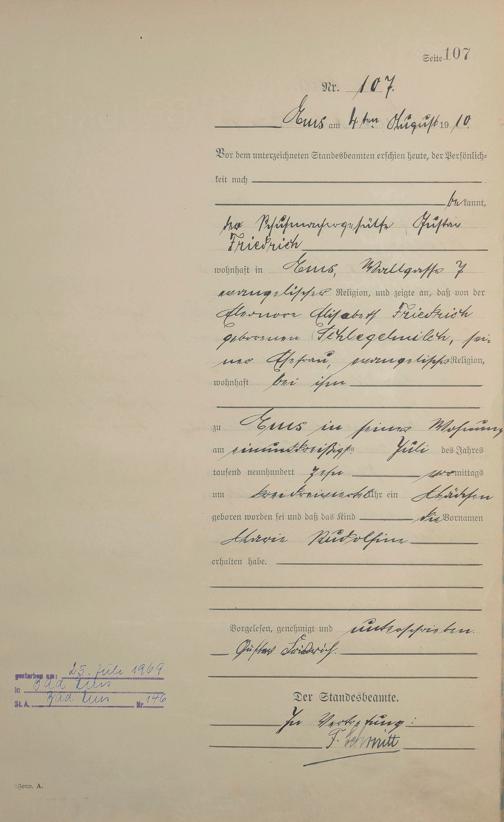 Seite 107
Nr. 107.
Ems am 4ten August 1910.
Vor dem unterzeichneten Standesbeamten erschien heute, der Persönlich-
keit nach
bekannt,
der Schuhmachergehülfe Gustav
Friedrich
wohnhaft in Ems, Wallgasse 7
evangelischer Religion, und zeigte an, daß von der
Eleonore Elisabeth Friedrich
geborenen Schlegelmilch, sei-
ner Ehefrau, evangelischer Religion,
wohnhaft bei ihm
zu Ems in seiner Wohnung
am einunddreißigsten Juli des Jahres
tausend neunhundert zehn vormittags
um Uhr ein Mädchen
geboren worden sei und daß das Kind die Vornamen
Marie Rudolfine
erhalten habe.
Vorgelesen, genehmigt und unterschrieben
Gustav Friedrich
Der Standesbeamte.
In Vertretung:
F. Schmitt
gestorben am: 25. Juli 1969
in Bad Ems
St. A. Bad Ems Nr. 146
A.